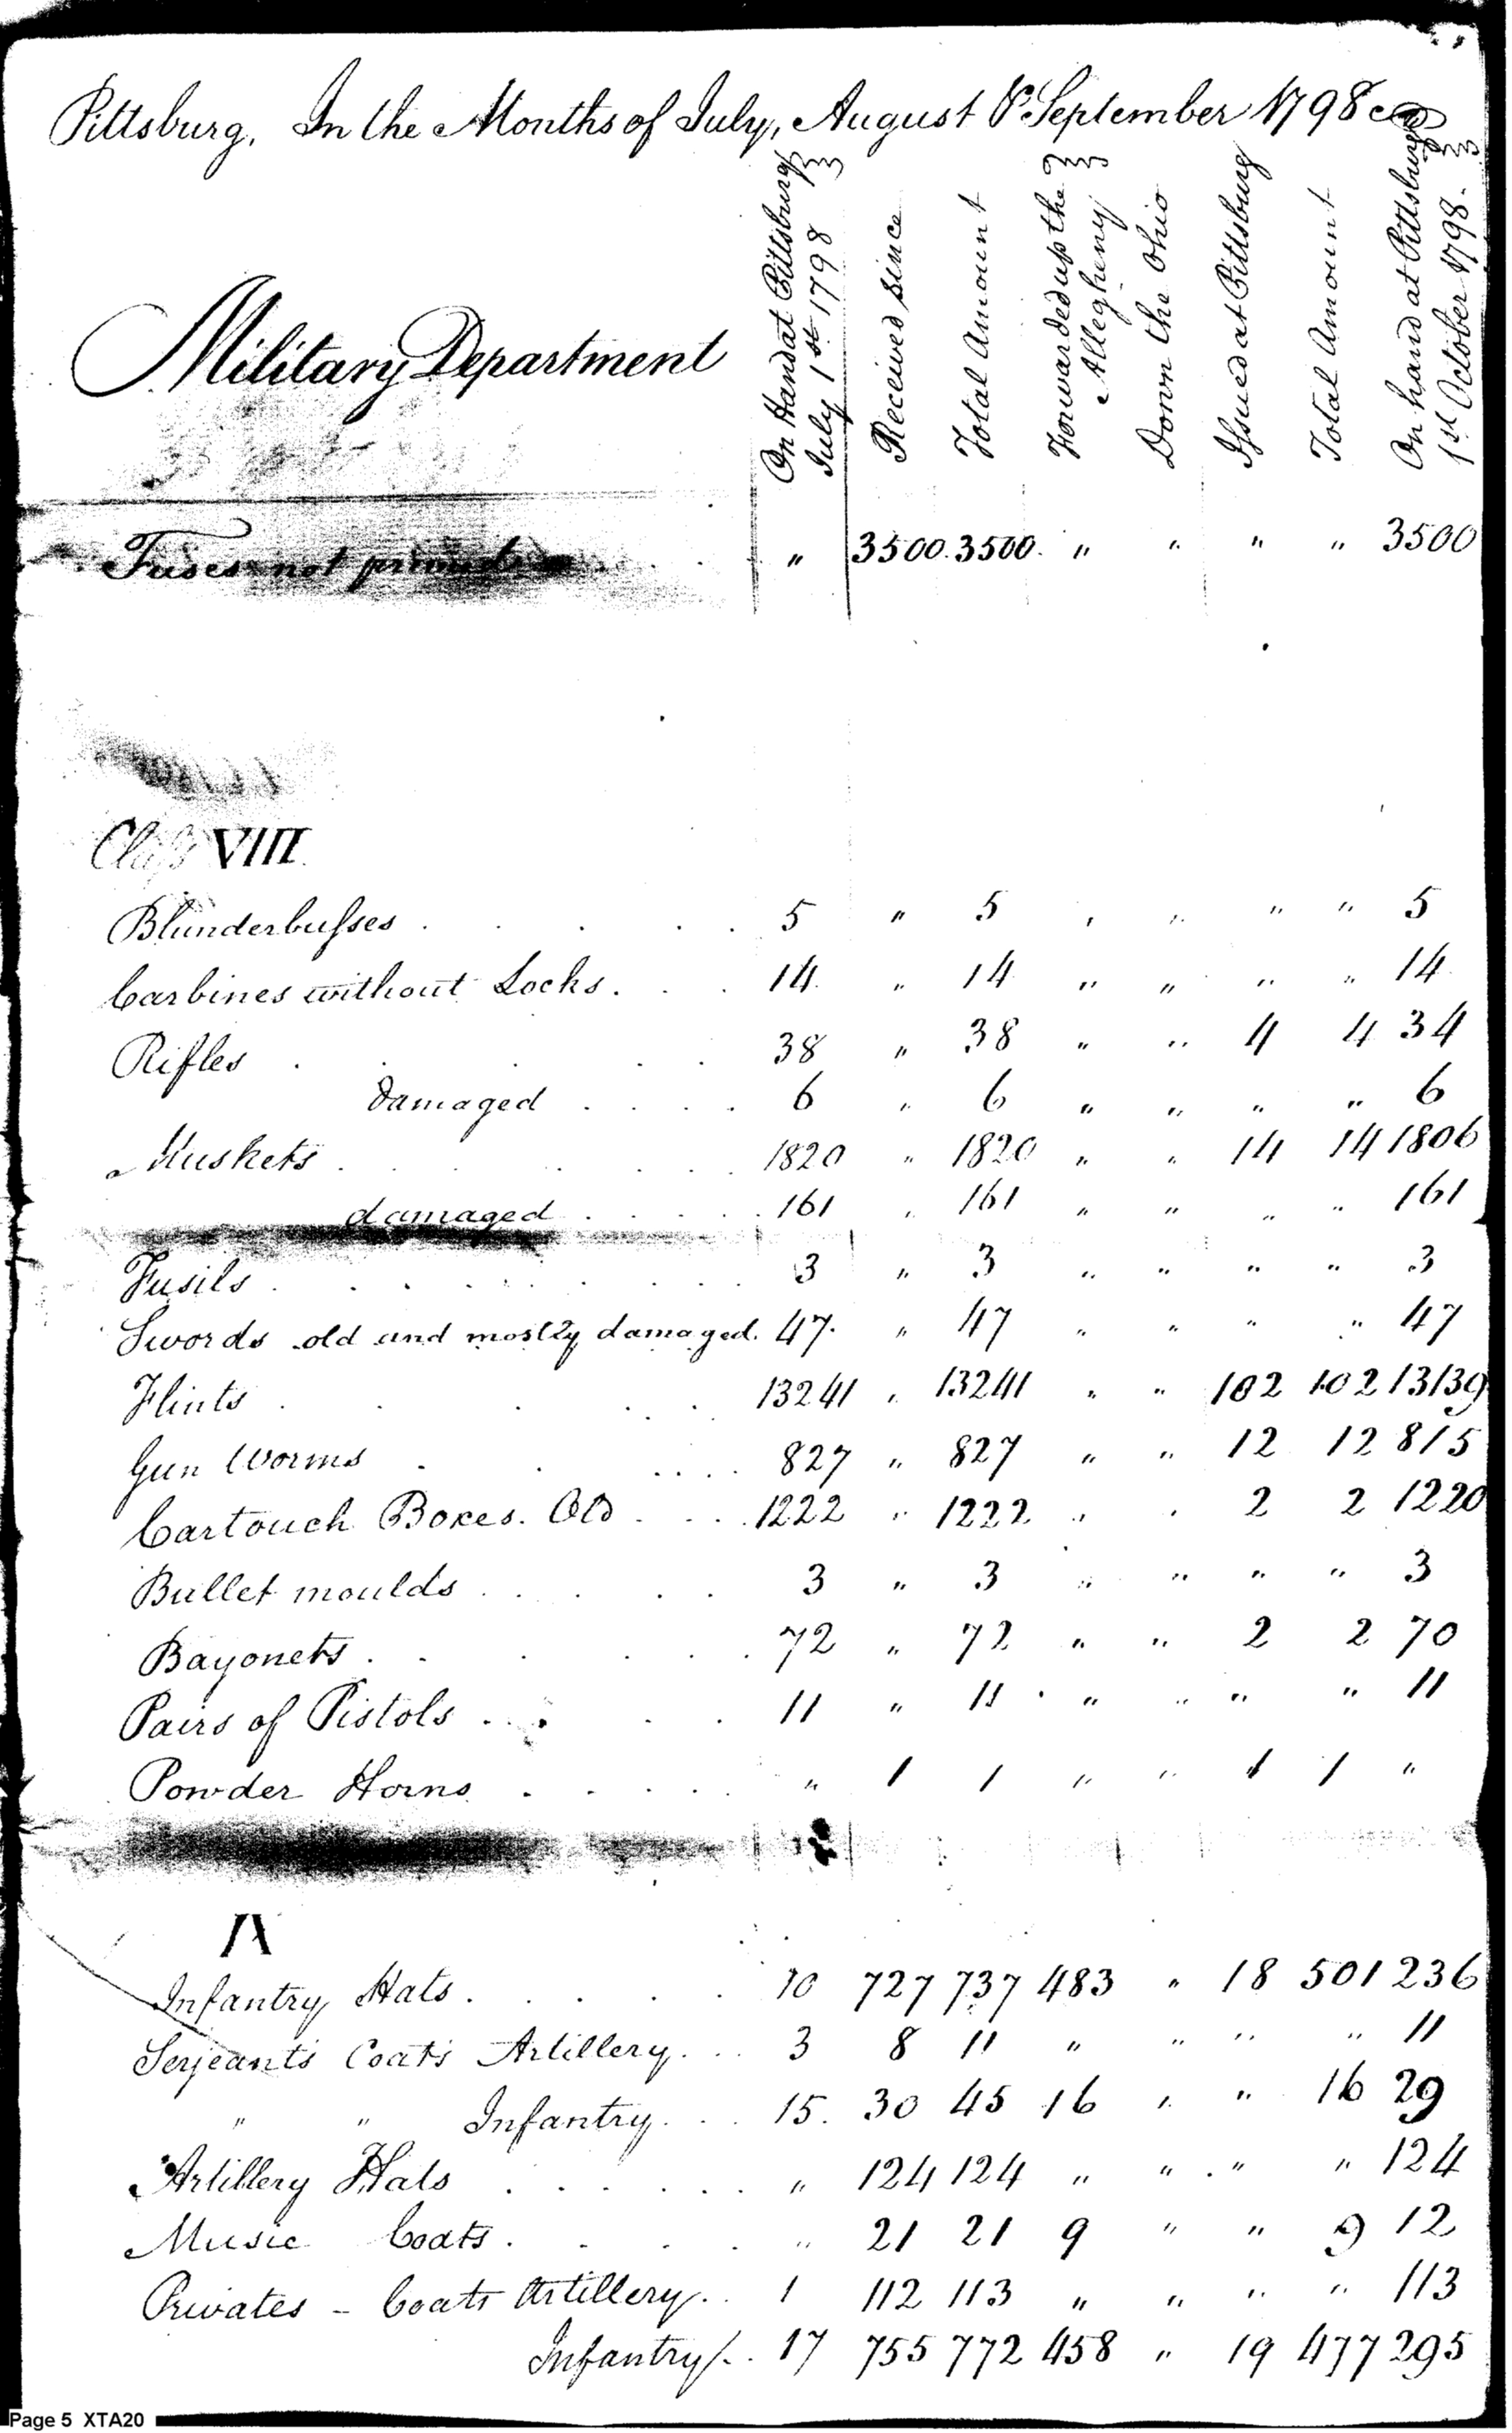 Pittsburg, In the Months of July, August & September 1798
Military Department
On Hand at Pittsburg July 1st 1798
Received since
Total Amount
Forwarded up the Allegheny
Down the Ohio
Issued at Pittsburg
Total Amount
On hand at Pittsburg 1st October 1798.
Fuses not primed " 3500 3500 " " " " 3500
Class VIII
Blunderbusses 5 " 5 " " " " 5
Carbines without Locks 14 " 14 " " " " 14
Rifles 38 " 38 " " 4 4 34
damaged 6 " 6 " " " " 6
Muskets 1820 " 1820 " " 14 14 1806
damaged 161 " 161 " " " " 161
Fusils 3 " 3 " " " " 3
Swords old and mostly damaged. 47 " 47 " " " " 47
Flints 13241 " 13241 " " 102 102 13139
Gun Worms 827 " 827 " " 12 12 815
Cartouch Boxes. Old 1222 " 1222 " " 2 2 1220
Bullet moulds 3 " 3 " " " " 3
Bayonets 72 " 72 " " 2 2 70
Pairs of Pistols 11 " 11 " " " " 11
Powder Horns " 1 1 " " 1 1 "
IX
Infantry Hats 10 727 737 483 " 18 501 236
Serjeants Coats Artillery 3 8 11 " " " " 11
" " Infantry 15 30 45 16 " " 16 29
Artillery Hats " 124 124 " " " " 124
Music Coats " 21 21 9 " " 9 12
Privates - Coats Artillery 1 112 113 " " " " 113
Infantry 17 755 772 458 " 19 477 295
Page 5 XTA20